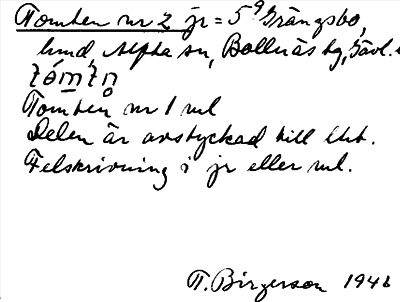 Tomten nr 2 jr = 5⁹ Grängsbo,
lund, Alfta sn, Bollnäs tg, Gävl.
Tomten nr 1 ml
Delen är avstyckad till ltr.
Felskrivning i jr eller ml.
T. Birgerson 1946